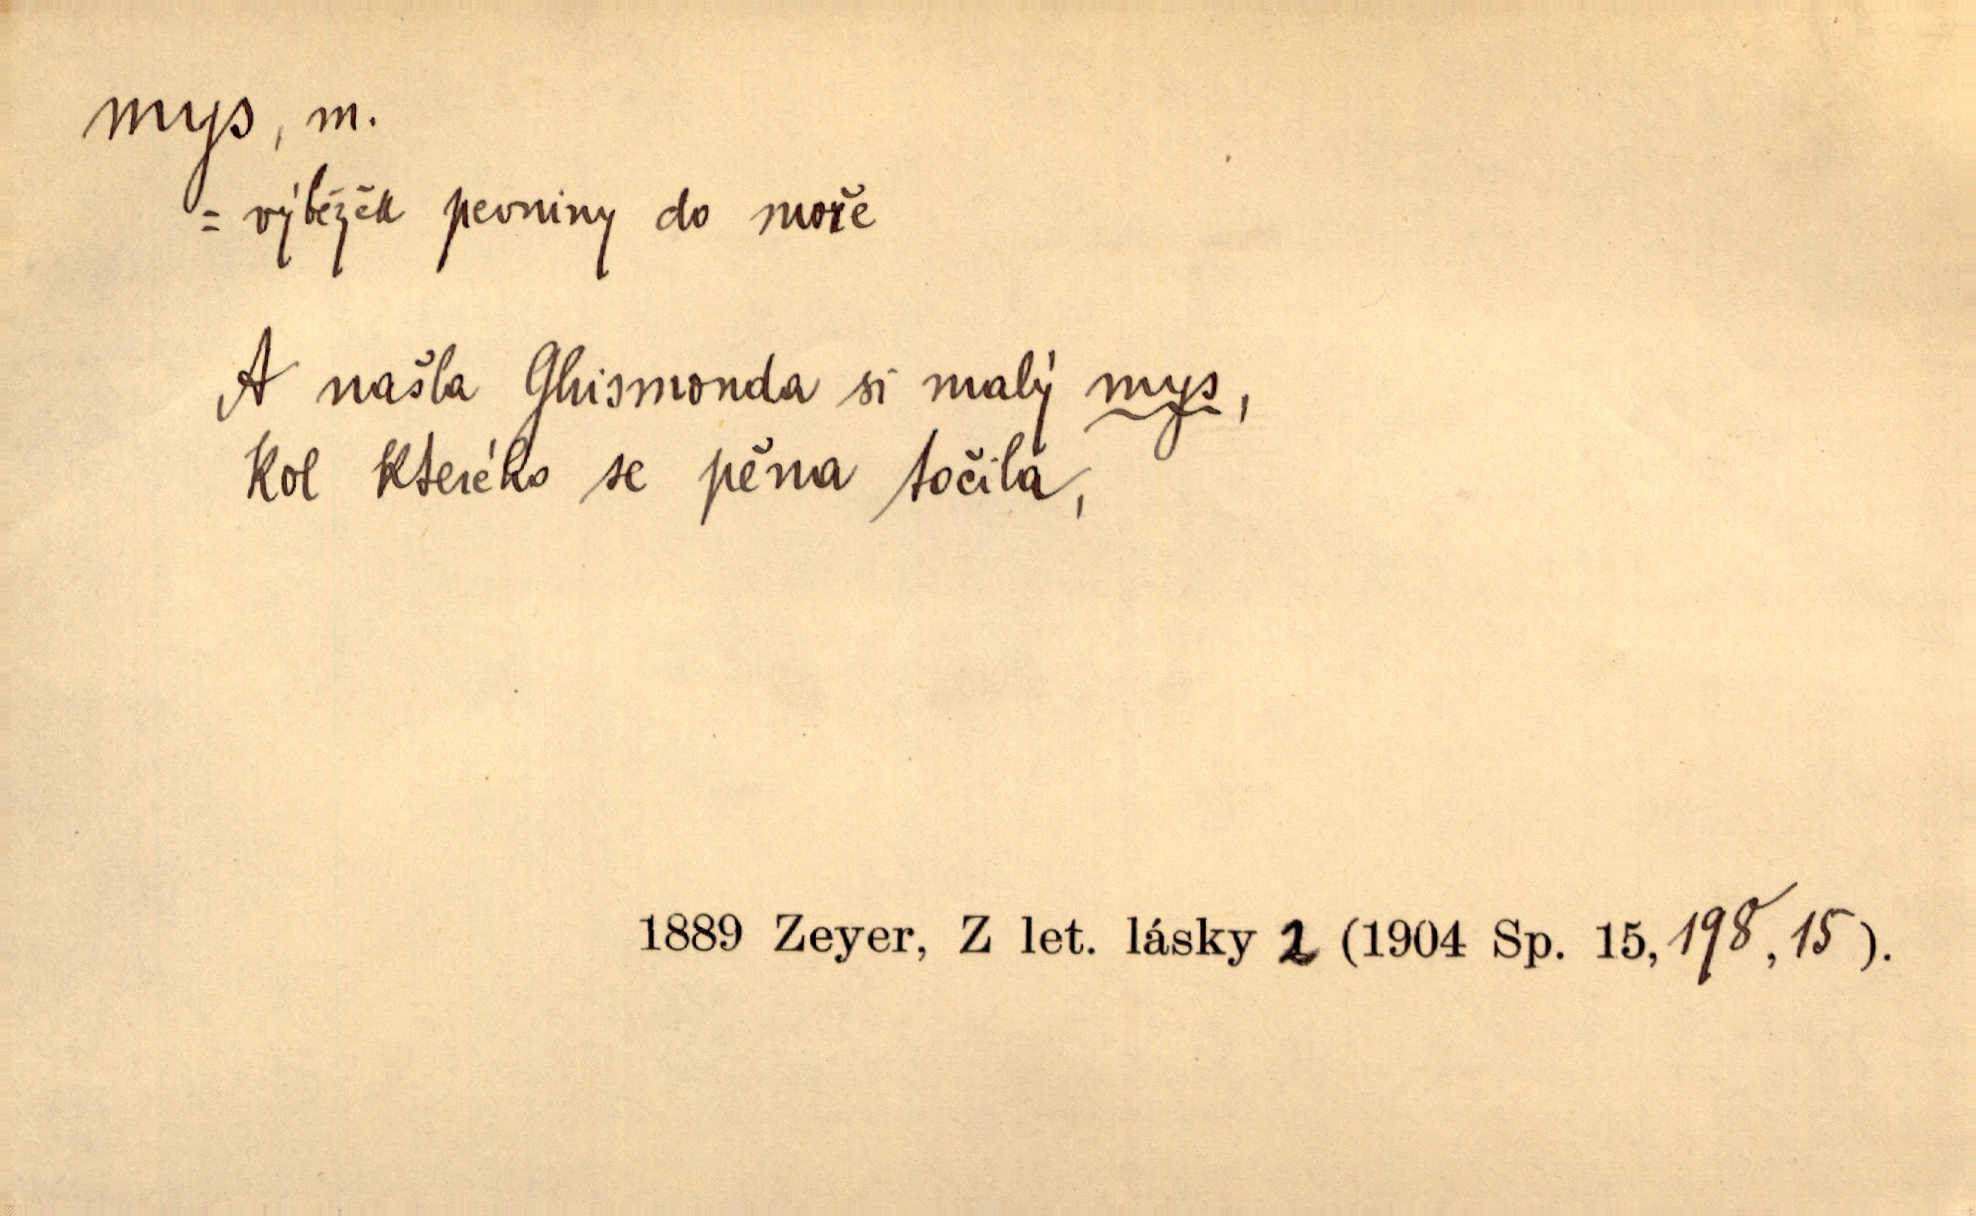 mys, m.
= výběžek pevniny do moře
A našla Ghismonda si malý mys,
kol kterého se pěna točila,
1889 Zeyer, Z let. lásky 2 (1904 Sp. 15, 198, 15).